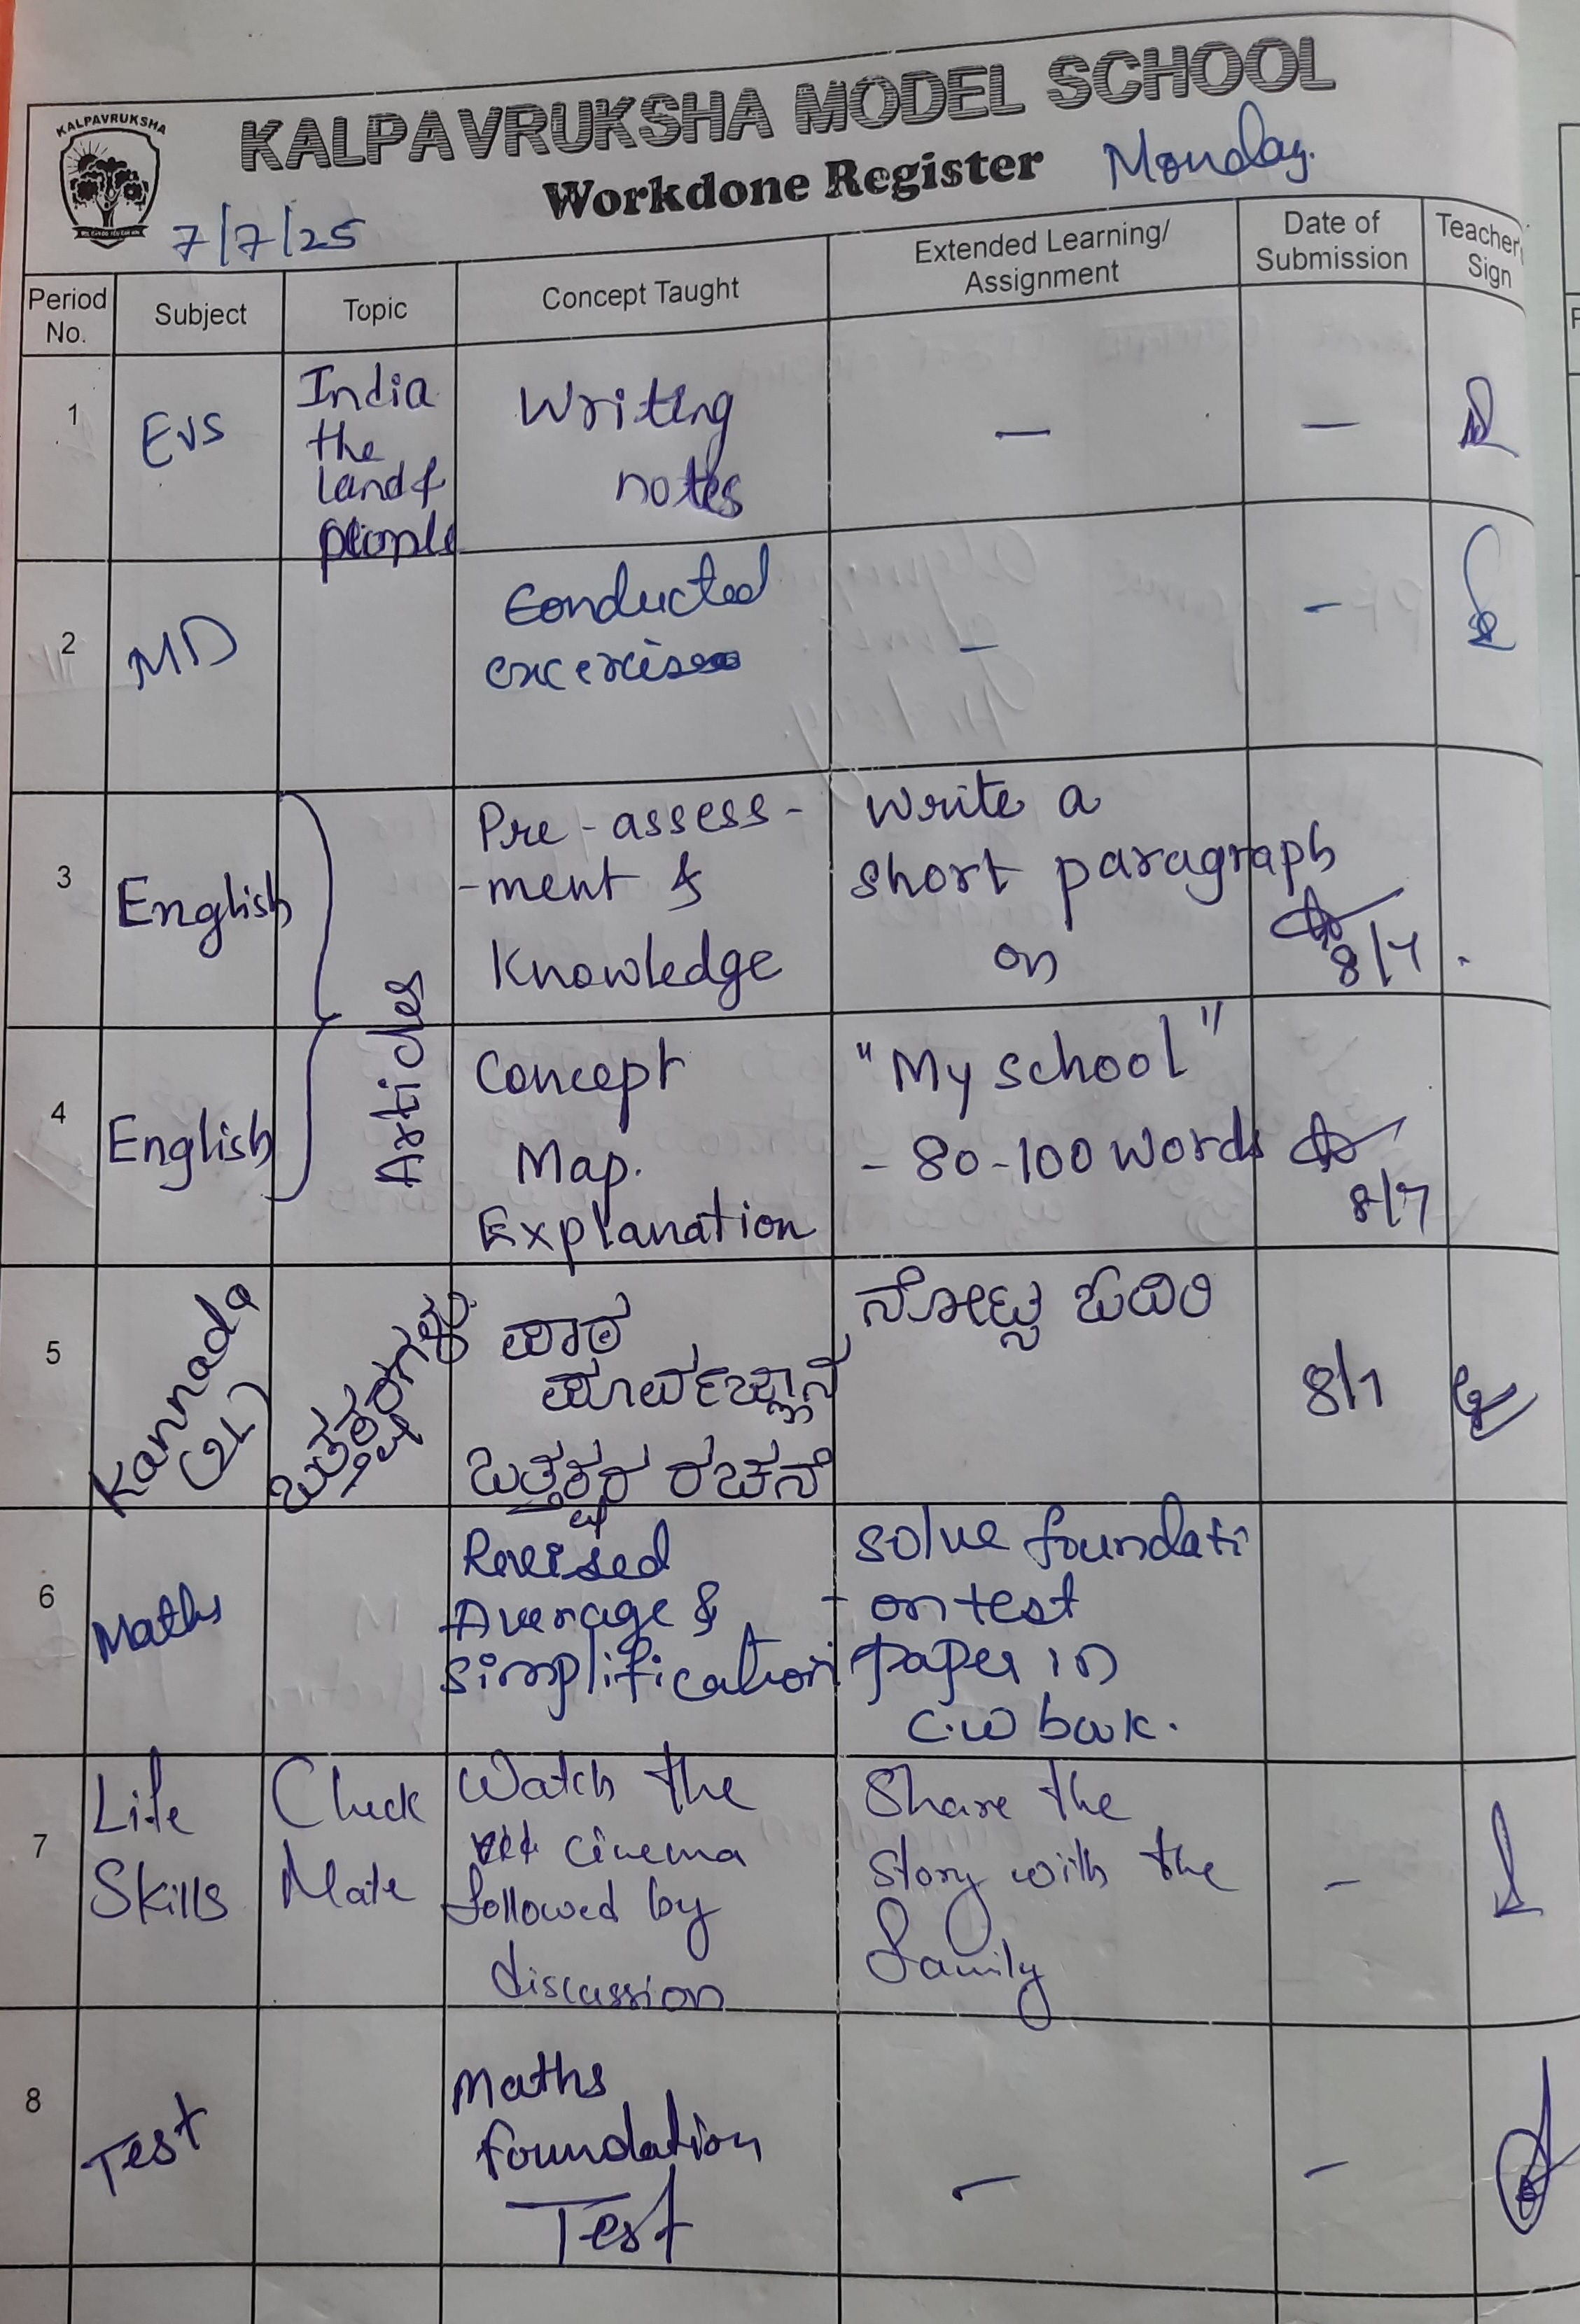 KALPAVRUKSHA
KALPAVRUKSHA MODEL SCHOOL
Workdone Register
Monday.
7/7/25
Period No.
Subject
Topic
Concept Taught
Extended Learning/
Assignment
Date of
Submission
Teacher's
Sign
1
EVS
India
the
land &
people
Writing
notes
—
—
2
MD
Conducted
excercises
–
–
3
English
Articles
Pre-assess-
-ment &
Knowledge
Write a
short paragraph
on
8/7.
4
English
Concept
Map.
Explanation
"My school"
- 80-100 words
8/7
5
Kannada
(2L)
ಒತ್ತಕ್ಷರಗಳು
ಪಾಠ
ಪೂರ್ವಜ್ಞಾನ
ಒತ್ತಕ್ಷರ ರಚನೆ
ನೋಟ್ಸ ಓದಿರಿ
8/7
6
Maths
Revised
Average &
simplification
solve foundati
- on test
paper in
c.w book.
7
Life
Skills
Check
Mate
Watch the
cinema
followed by
discussion
Share the
story with the
family
–
8
Test
Maths
foundation
Test
–
–